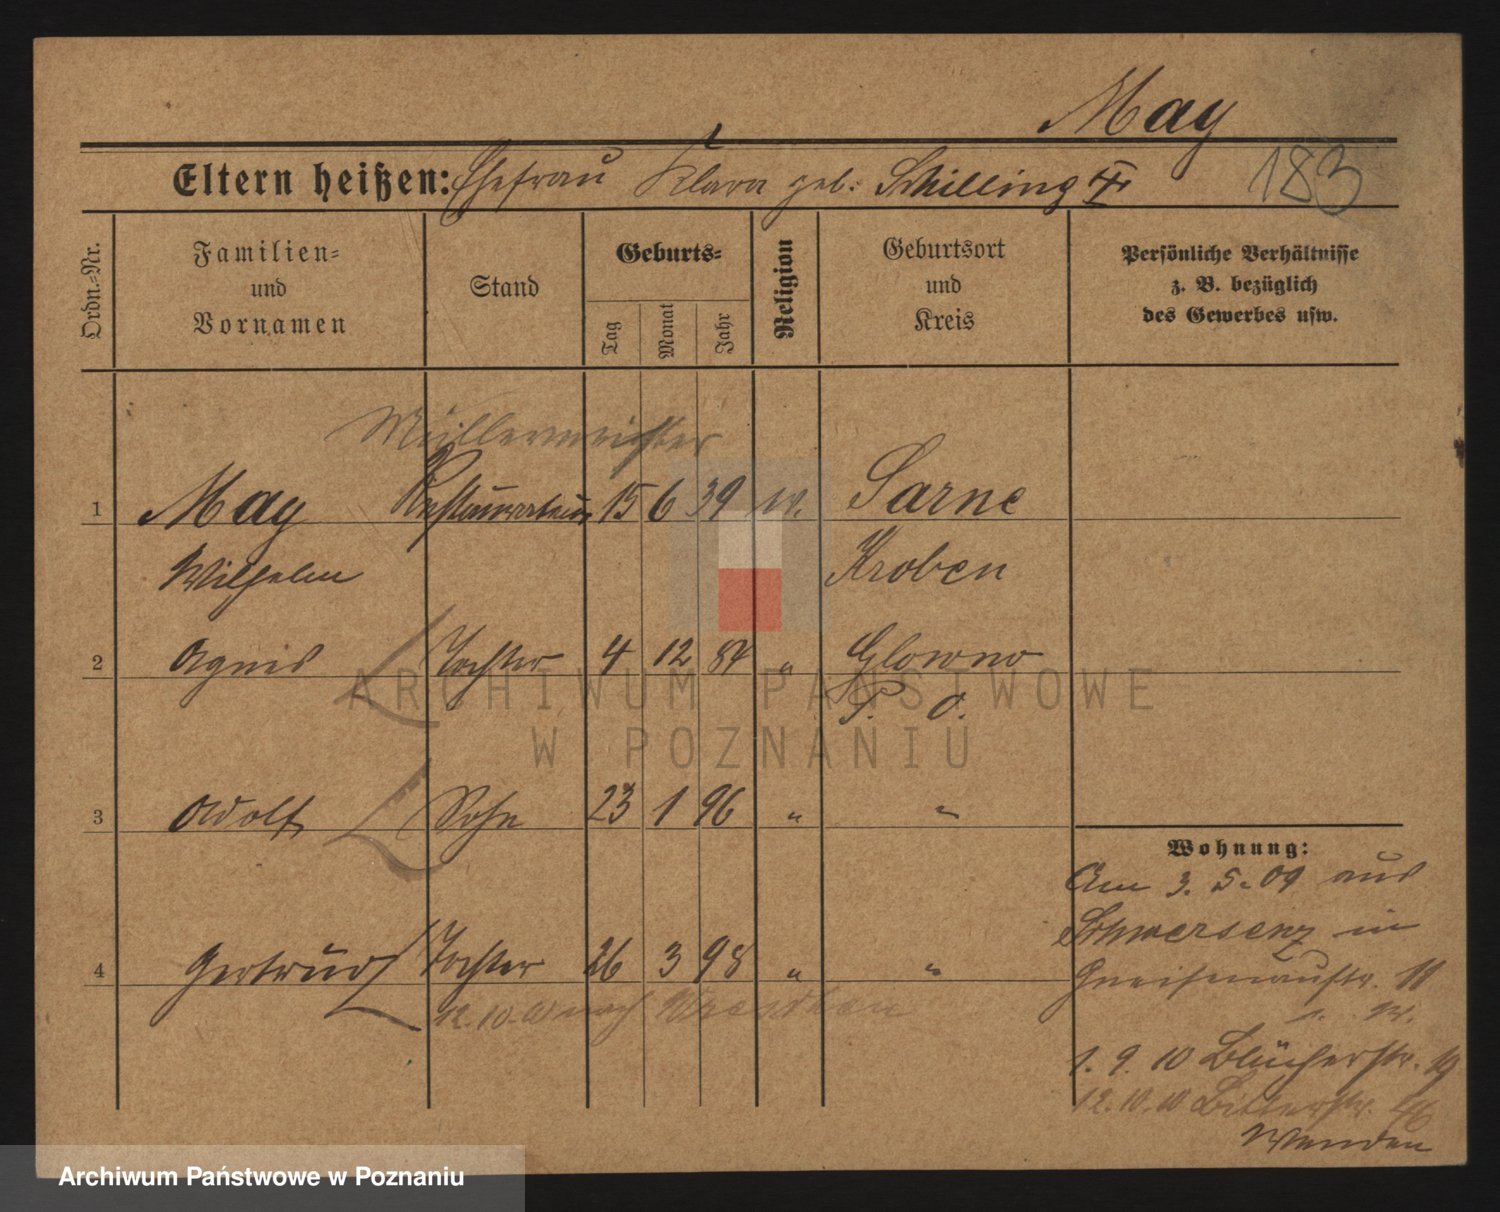 May
Eltern heißen: Ehefrau Klara geb: Schilling
183
Ordn.-Nr.
Familien-
und
Vornamen
Stand
Geburts-
Tag
Monat
Jahr
Religion
Geburtsort
und
Kreis
Persönliche Verhältnisse
z. B. bezüglich
des Gewerbes usw.
Müllermeister
1 May Restaurateur 15 6 39 Sarne
Wilhelm Kroben
2 Agnes Tochter 4 12 87 " Glowno
P. O.
3 Adolf Sohn 23 1 96 " "
4 Gertrud Tochter 26 3 98 " "
12.10. nach
Wohnung:
Am 3. 5. 09 aus
Schwersenz in
Gneisenaustr. 11
1. 9. 10 Blücherstr. 19
12.10.10
Wenden
ARCHIWUM PAŃSTWOWE
W POZNANIU
Archiwum Państwowe w Poznaniu